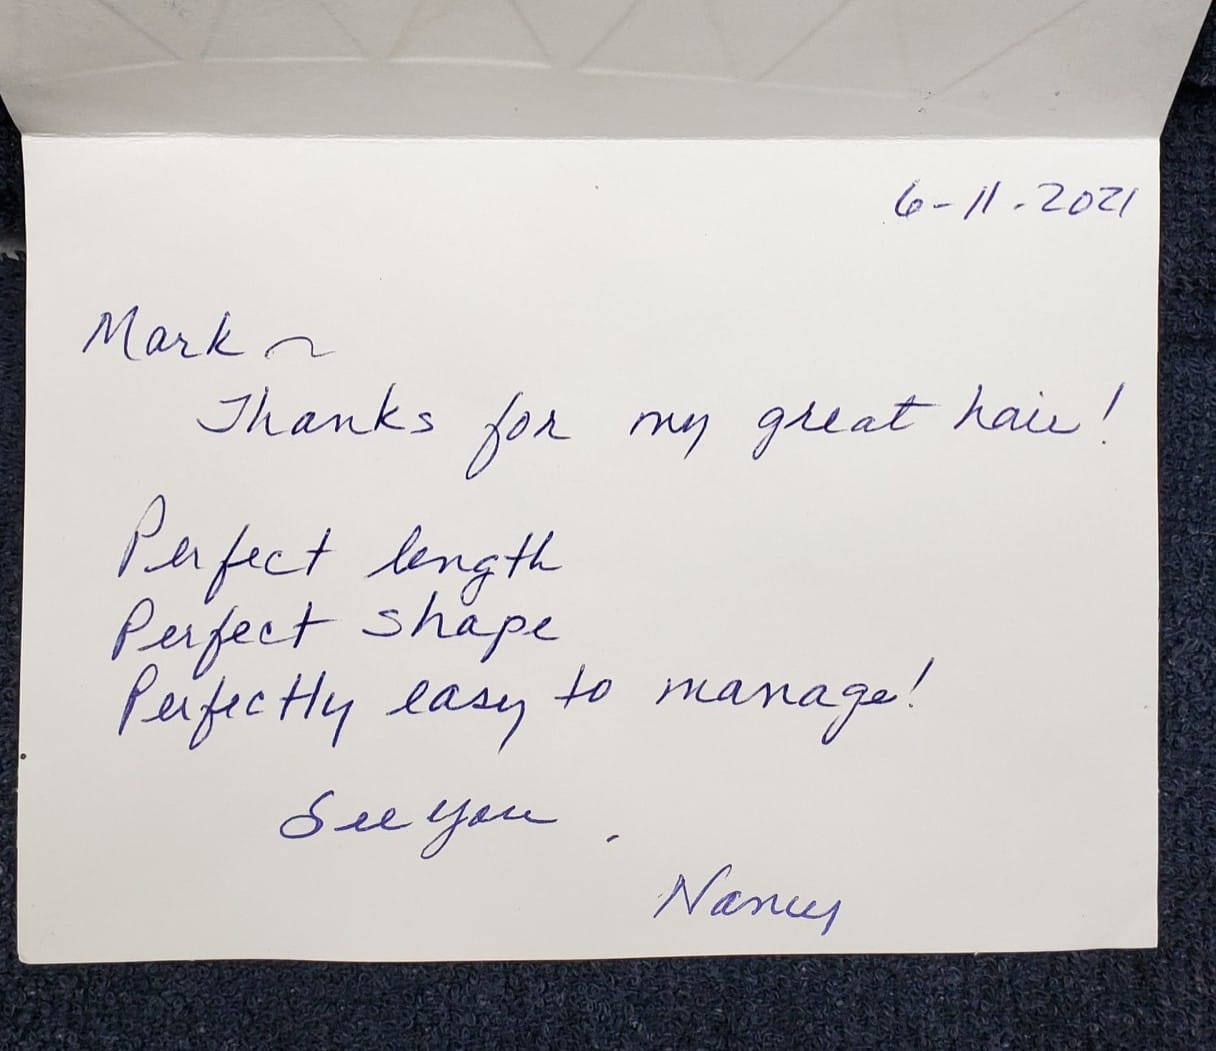 6-11-2021
Mark ~
Thanks for my great hair!
Perfect length
Perfect shape
Perfectly easy to manage!
See you.
Nancy